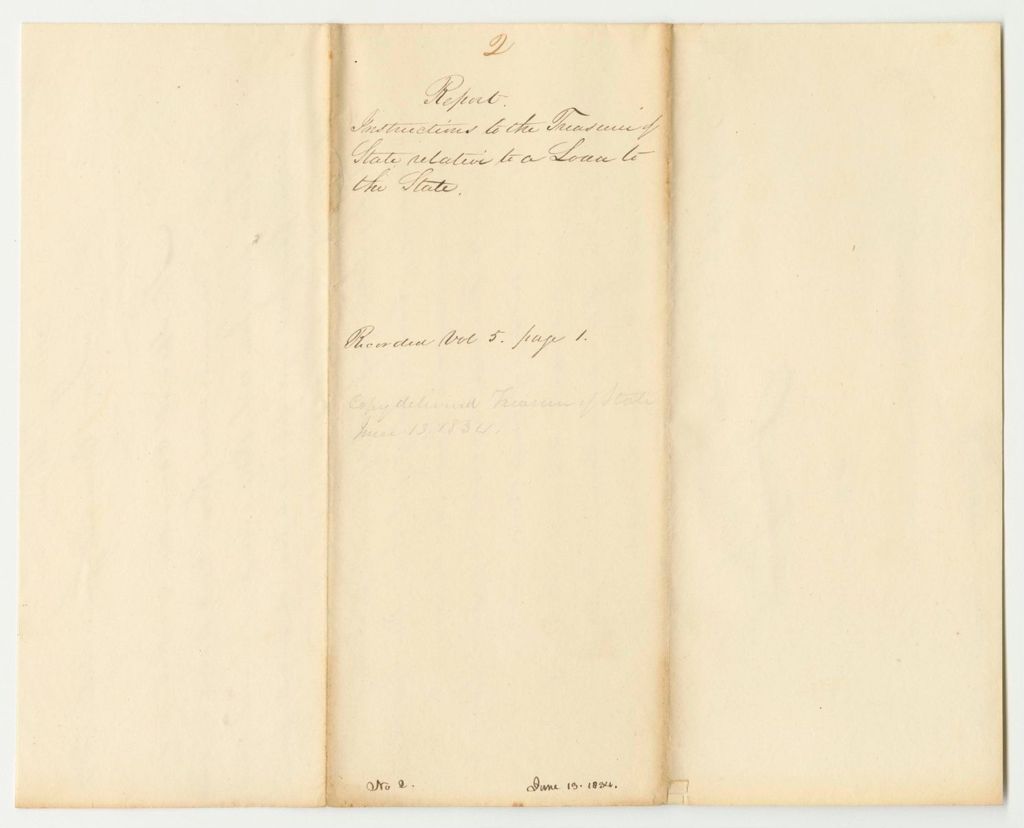 2
Report.
Instructions to the Treasurer of
State relative to a Loan to
the State.
Recorded Vol 5. page 1.
Copy delivered Treasurer of State
June 13. 1834.
No 2. June 13. 1834.